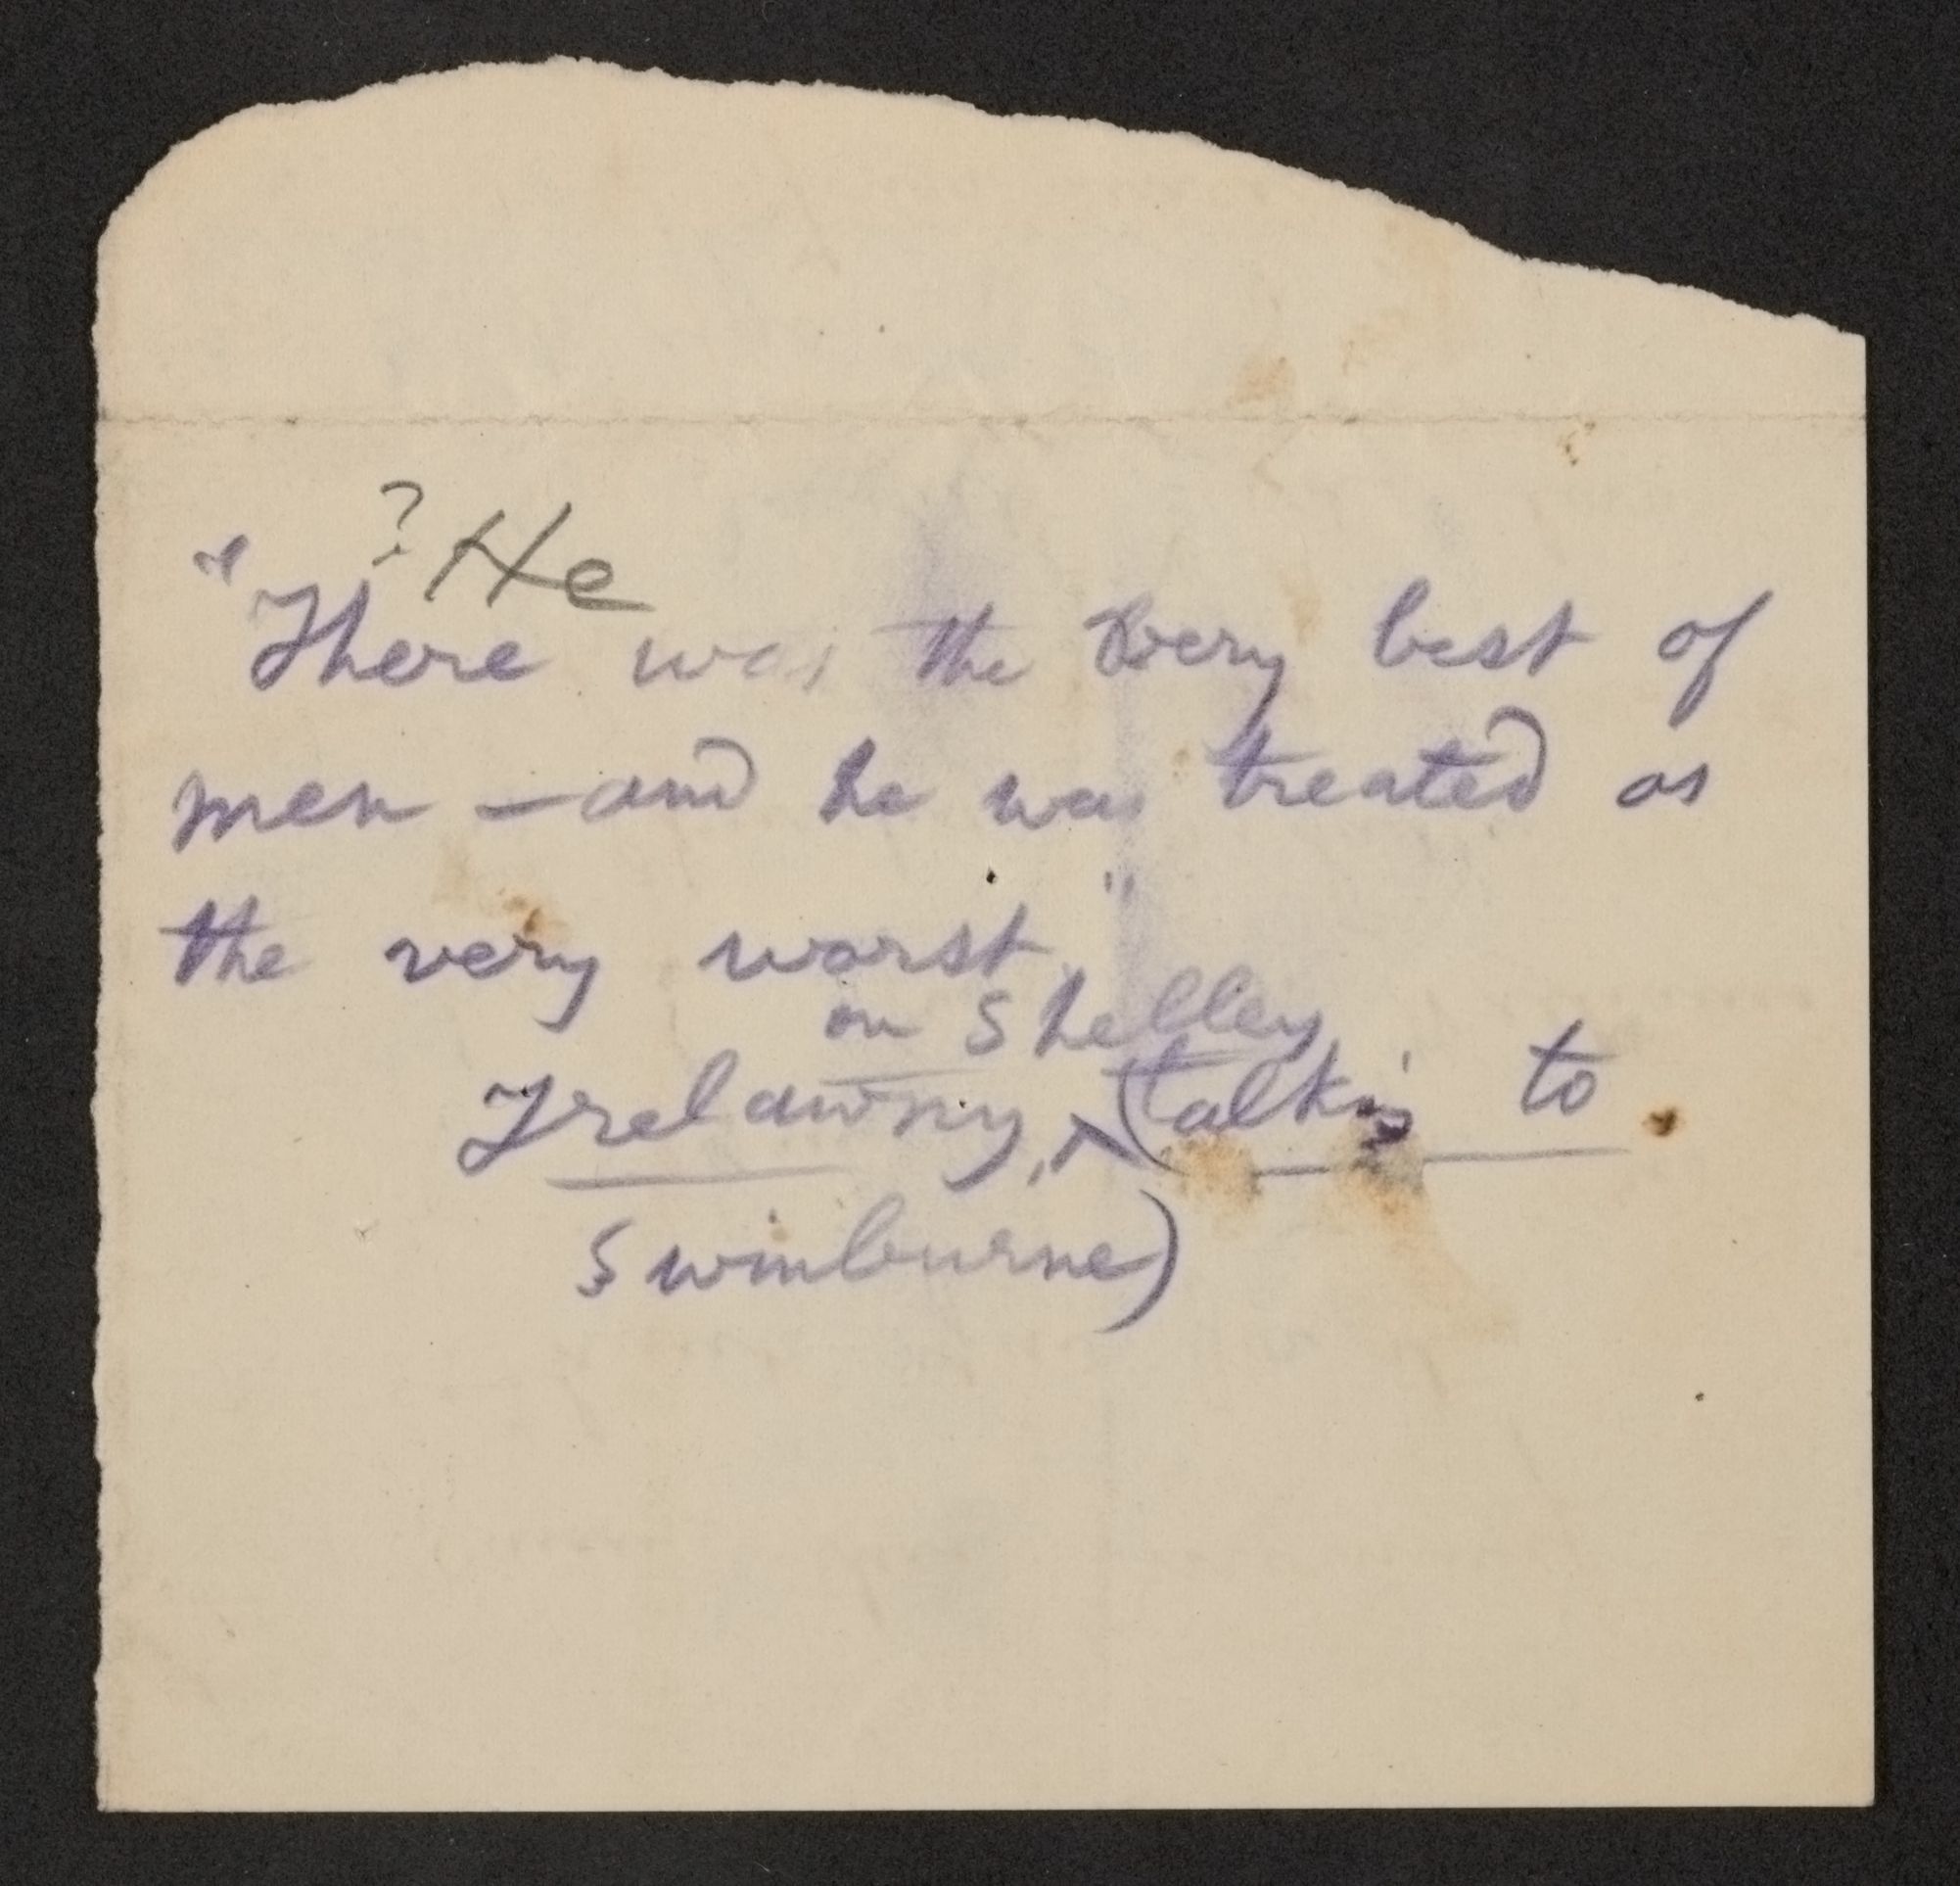 ? He
"There was the very best of
men — and he was treated as
the very worst."
on Shelley
Trelawny, ^ (talkig to
Swinburne)